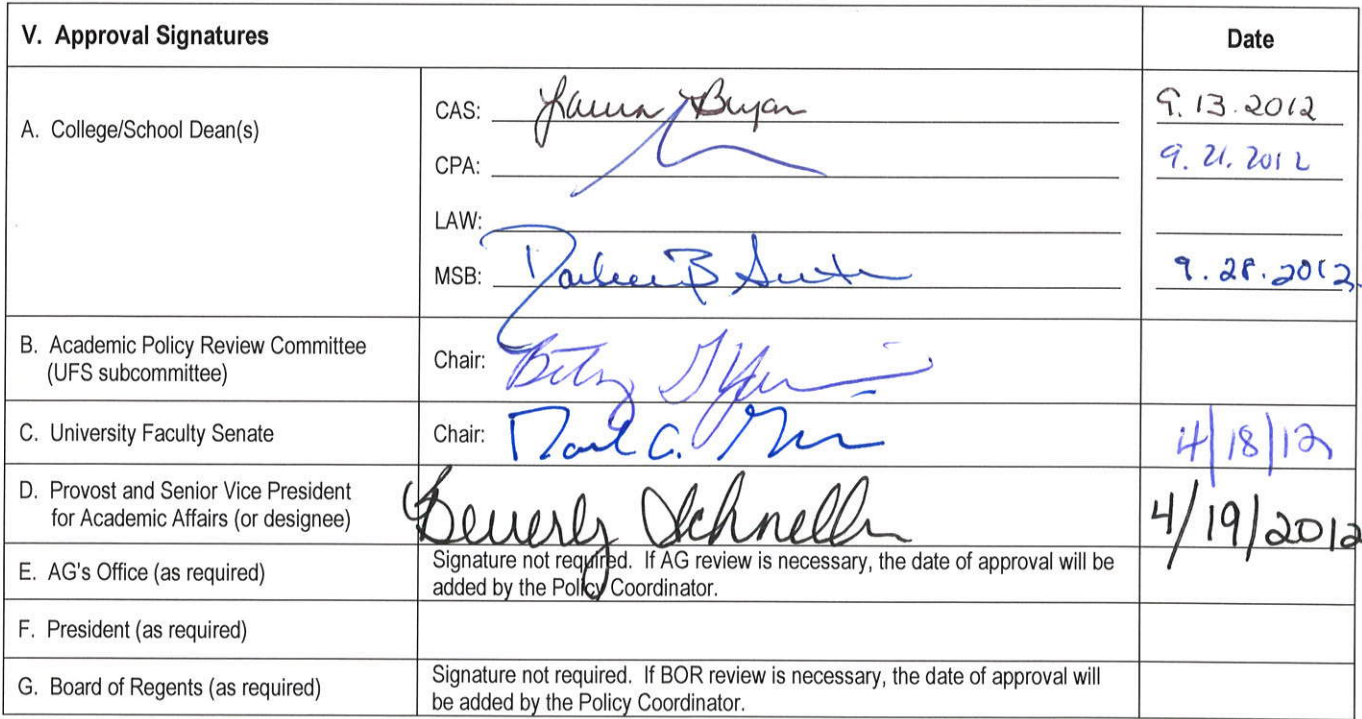 V. Approval Signatures Date
A. College/School Dean(s)
CAS: Laura Bryan 9.13.2012
CPA: 9.21.2012
LAW:
MSB: B 9.28.2012
B. Academic Policy Review Committee
(UFS subcommittee)
Chair: Betsy
C. University Faculty Senate
Chair: C. 4/18/12
D. Provost and Senior Vice President
for Academic Affairs (or designee)
Beverly Schneller 4/19/2012
E. AG's Office (as required)
Signature not required. If AG review is necessary, the date of approval will be
added by the Policy Coordinator.
F. President (as required)
G. Board of Regents (as required)
Signature not required. If BOR review is necessary, the date of approval will
be added by the Policy Coordinator.